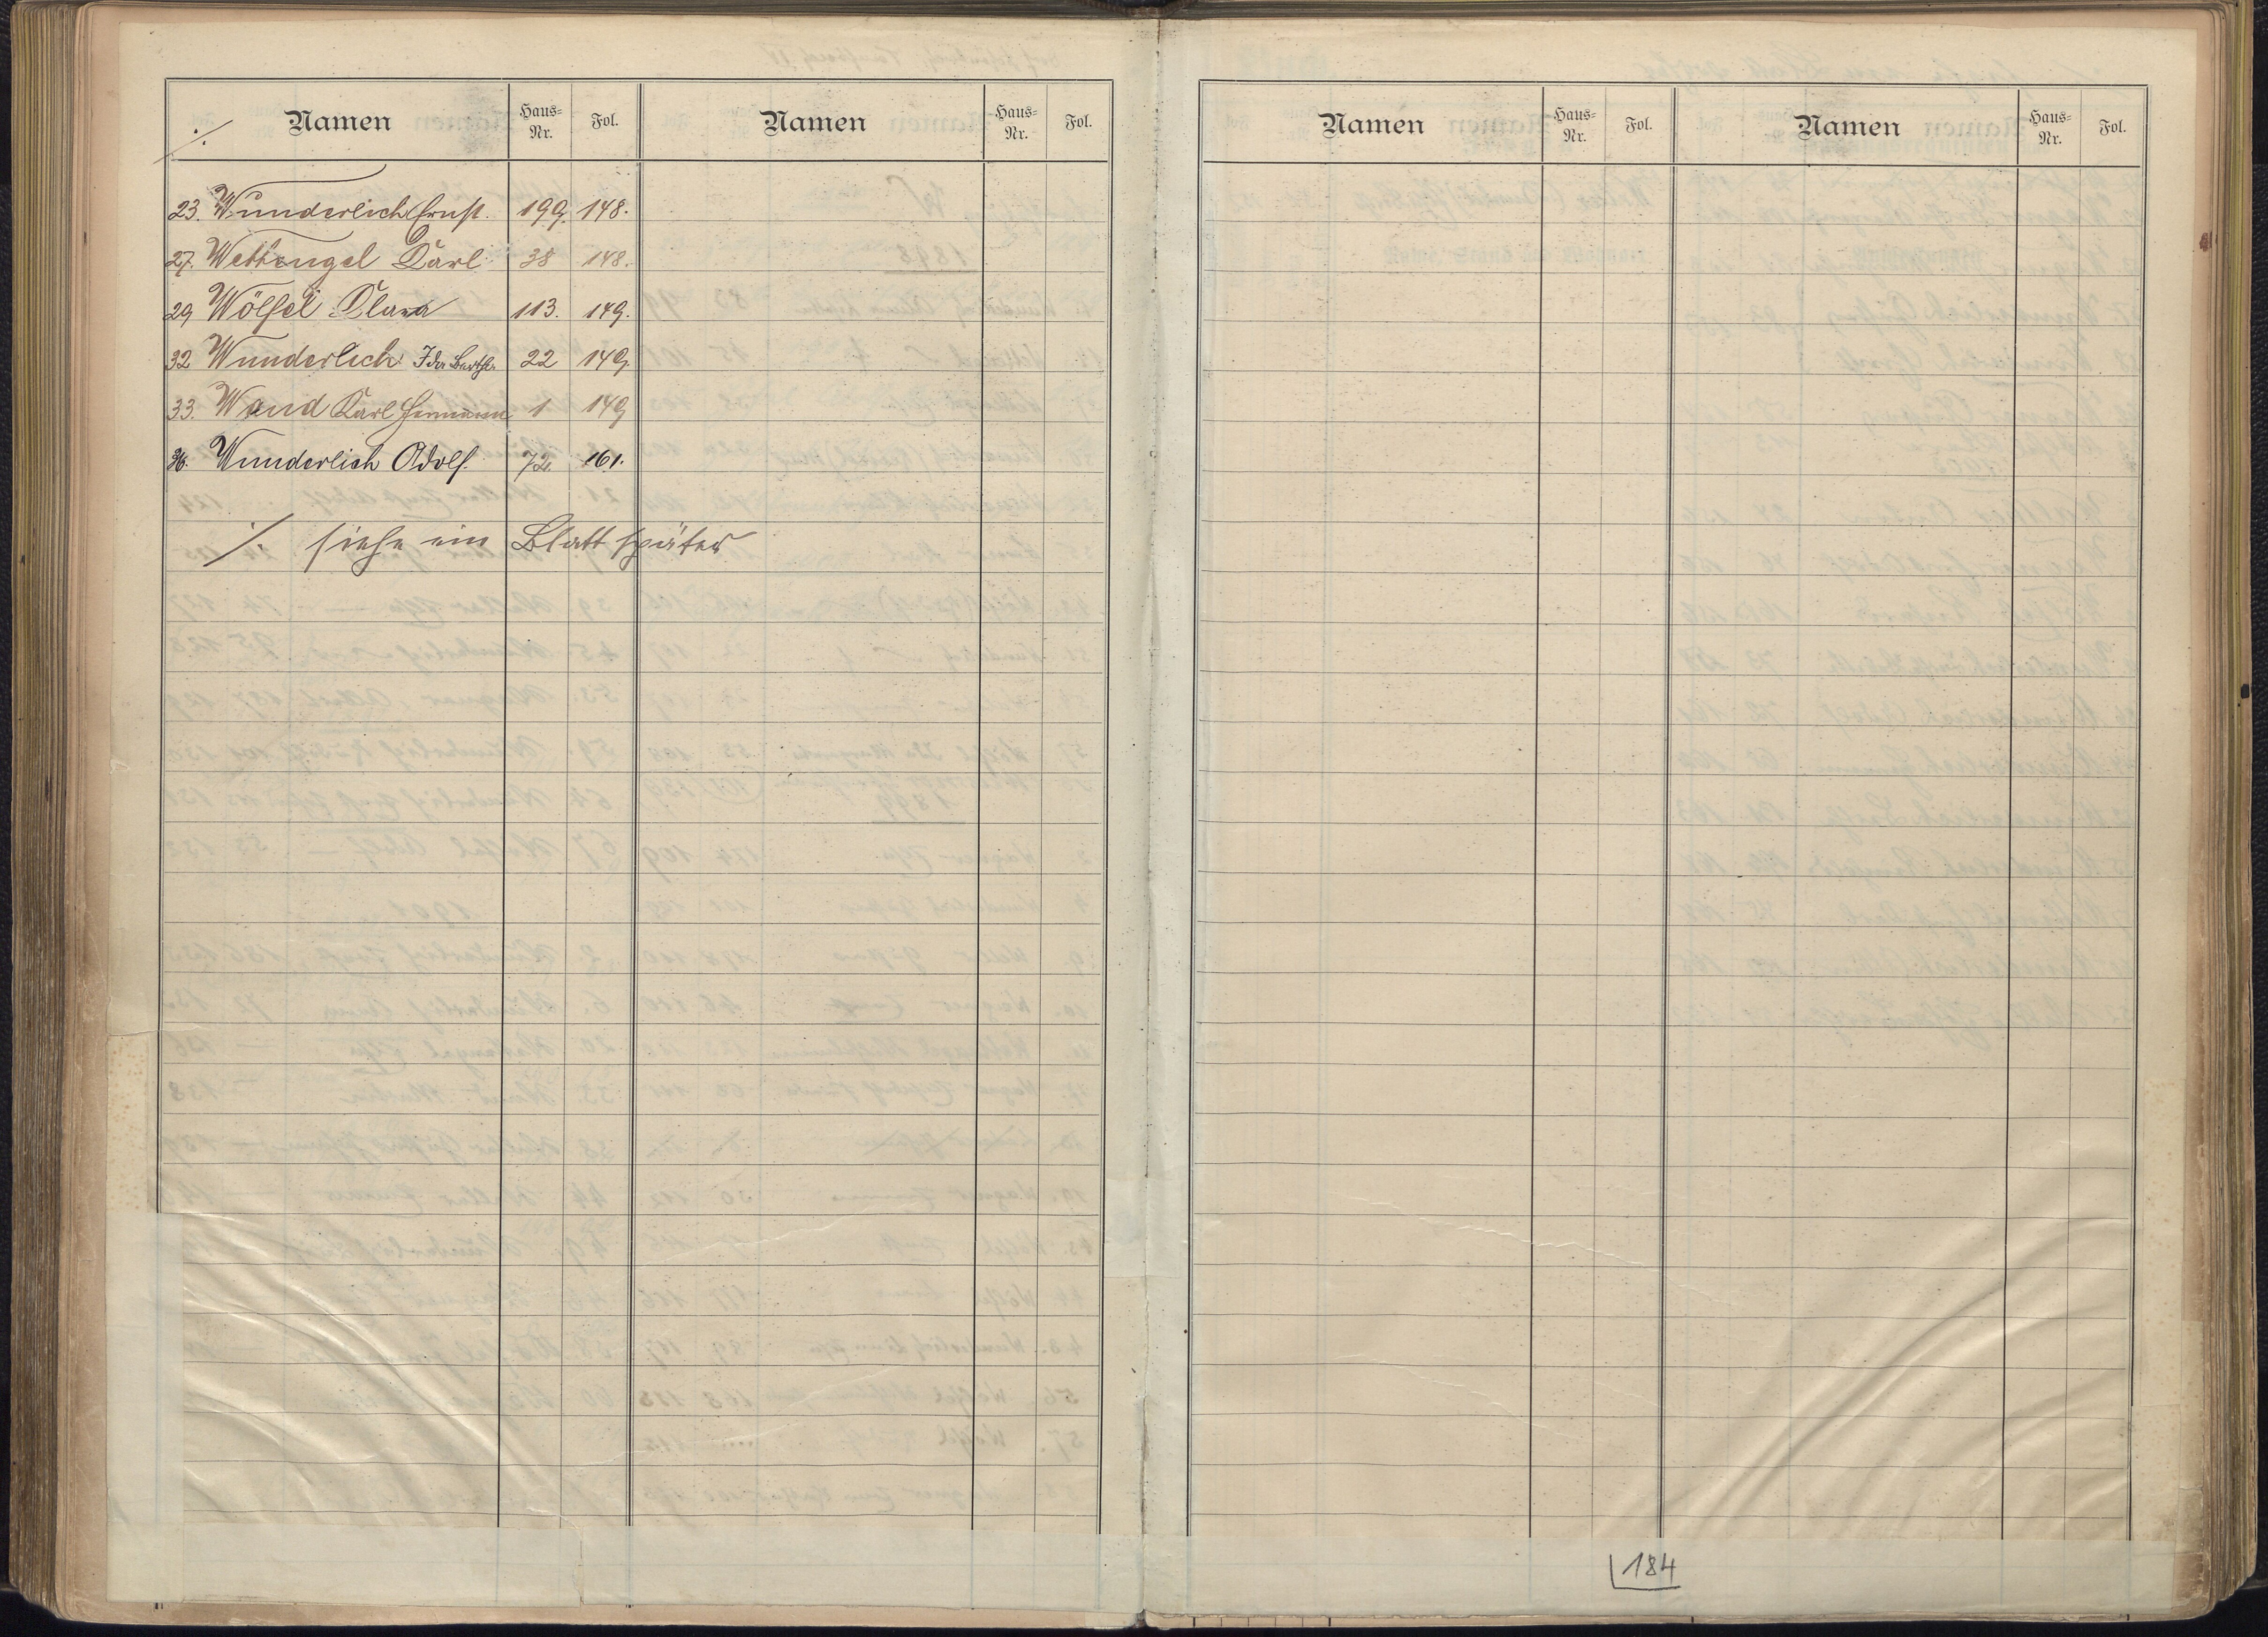 Namen Haus-Nr. Fol. Namen Haus-Nr. Fol.
./.
23. Wunderlich Ernst. 199. 148.
27. Wettengel Karl 38 148.
29 Wölfel Klara 113. 149.
32 Wunderlich Ida 22 149
33. Wand Karl Hermann 1 149
36. Wunderlich Adolf. 72. 161.
./. siehe ein Blatt später
Namen Haus-Nr. Fol. Namen Haus-Nr. Fol.
184